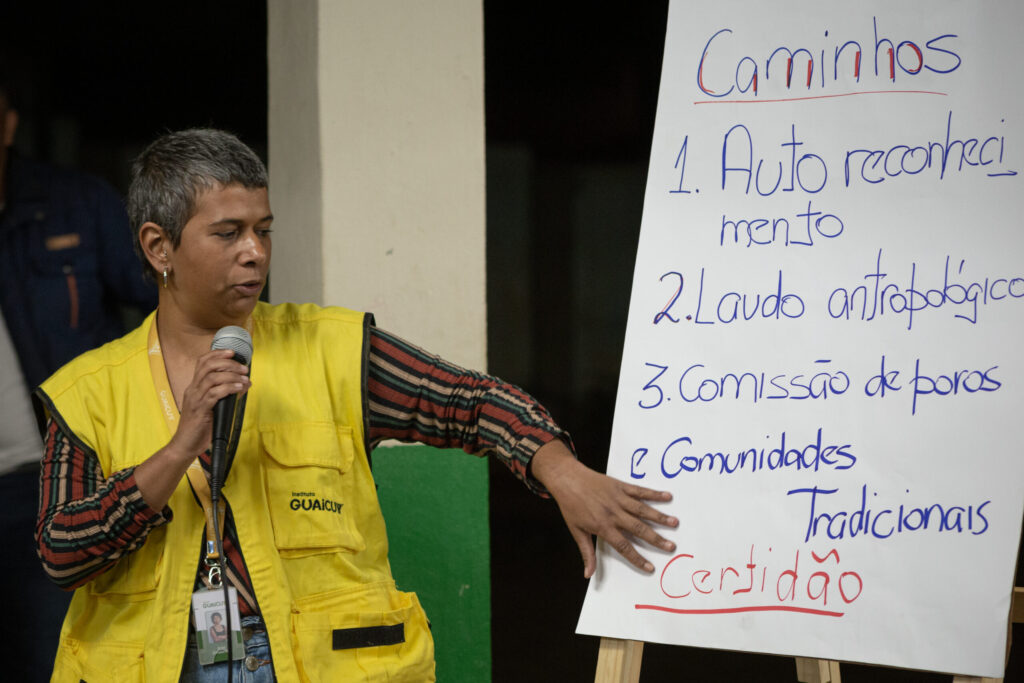 Caminhos
1. Auto reconheci_
mento
2. Laudo antropológico
3. Comissão de poros
e Comunidades
Tradicionais
Certidão
Instituto
GUAICUY